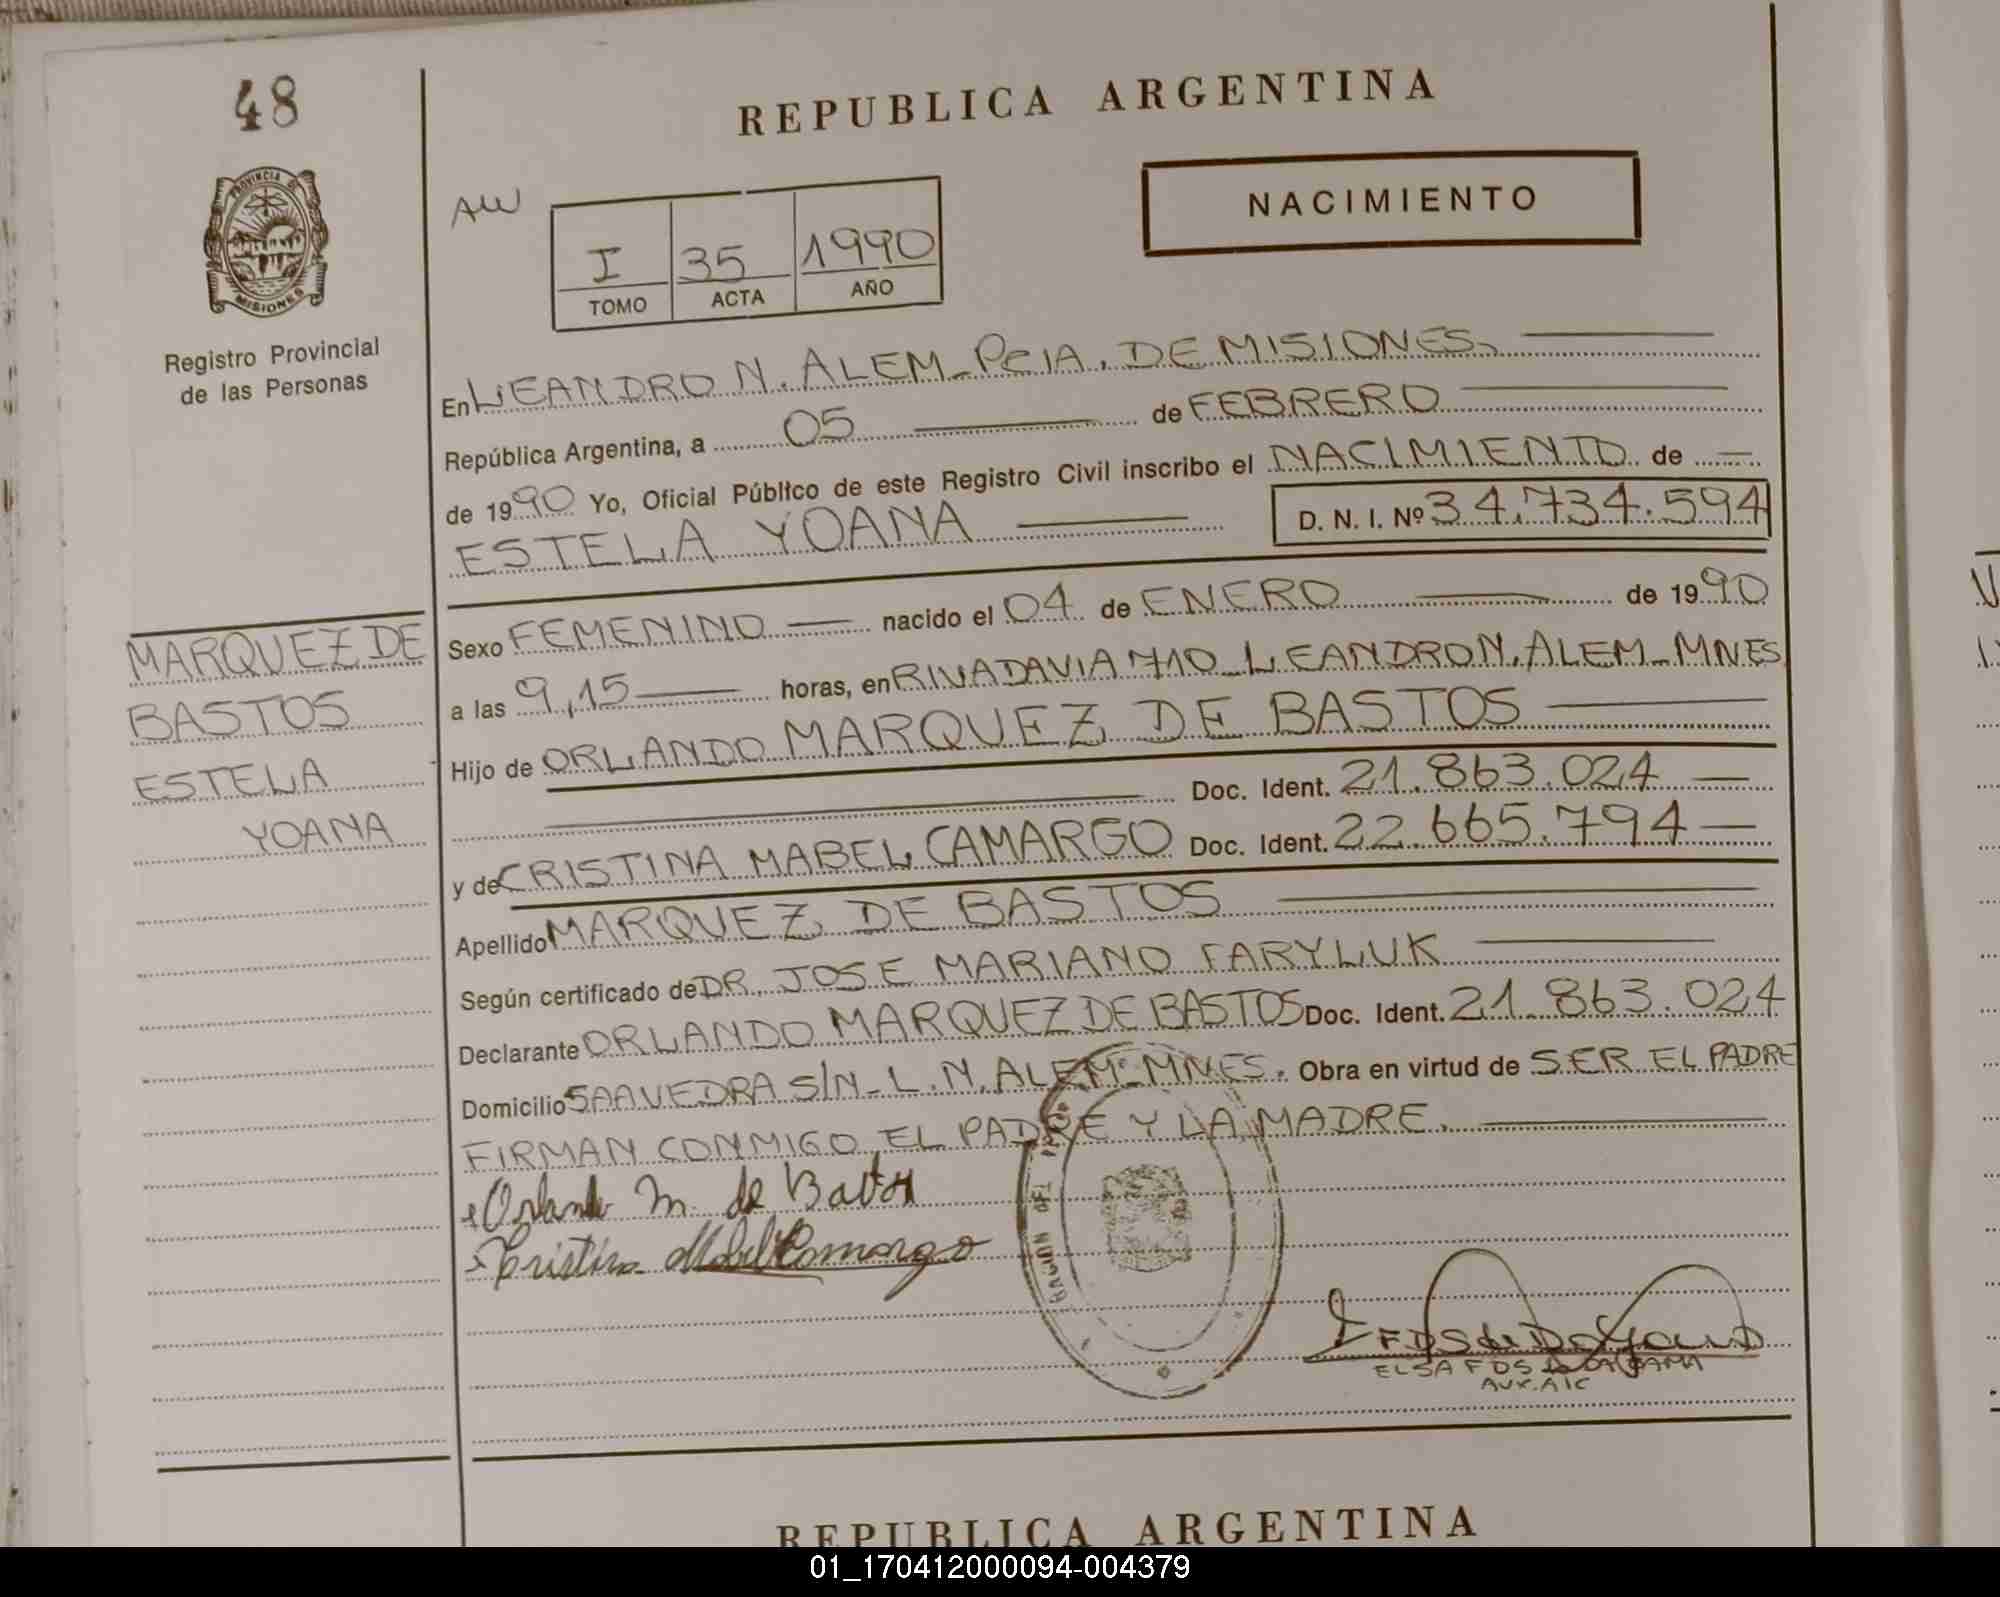 48
REPUBLICA ARGENTINA
AW
NACIMIENTO
I 35 1990
TOMO ACTA AÑO
PROVINCIA DE
MISIONES
Registro Provincial
de las Personas
En LEANDRO N. ALEM_PCIA. DE MISIONES.
República Argentina, a 05 de FEBRERO
de 1990 Yo, Oficial Público de este Registro Civil inscribo el NACIMIENTO de
ESTELA YOANA D. N. I. Nº 34.734.594
Sexo FEMENINO nacido el 04 de ENERO de 1990
a las 9,15 horas, en RIVADAVIA 710_LEANDRO N. ALEM_MNES
Hijo de ORLANDO MARQUEZ DE BASTOS
Doc. Ident. 21.863.024
y de CRISTINA MABEL CAMARGO Doc. Ident. 22.665.794
Apellido MARQUEZ DE BASTOS
Según certificado de DR. JOSE MARIANO FARYLUK
Declarante ORLANDO MARQUEZ DE BASTOS Doc. Ident. 21.863.024
Domicilio SAAVEDRA S/N_L.N. ALEM_MNES. Obra en virtud de SER EL PADRE
FIRMAN CONMIGO EL PADRE Y LA MADRE.
MARQUEZ DE
BASTOS
ESTELA
YOANA
Orlando M. de Bastos
Cristina Mabel Camargo
ELSA F DOS
AUX. A/C
REPUBLICA ARGENTINA
01_170412000094-004379